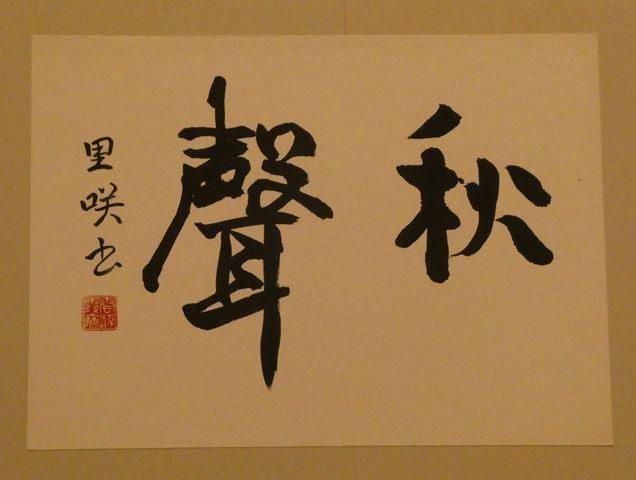 秋聲
里咲书